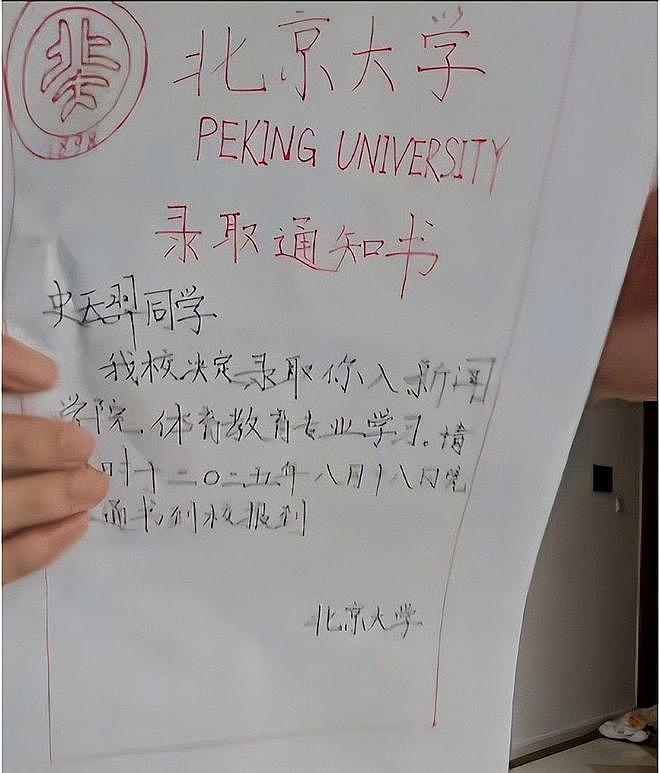 1898
北京大学
PEKING UNIVERSITY
录取通知书
史天羿同学
我校决定录取你入新闻
学院，体育教育专业学习。请
时于二〇二五年八月十八日凭
通书到校报到
北京大学